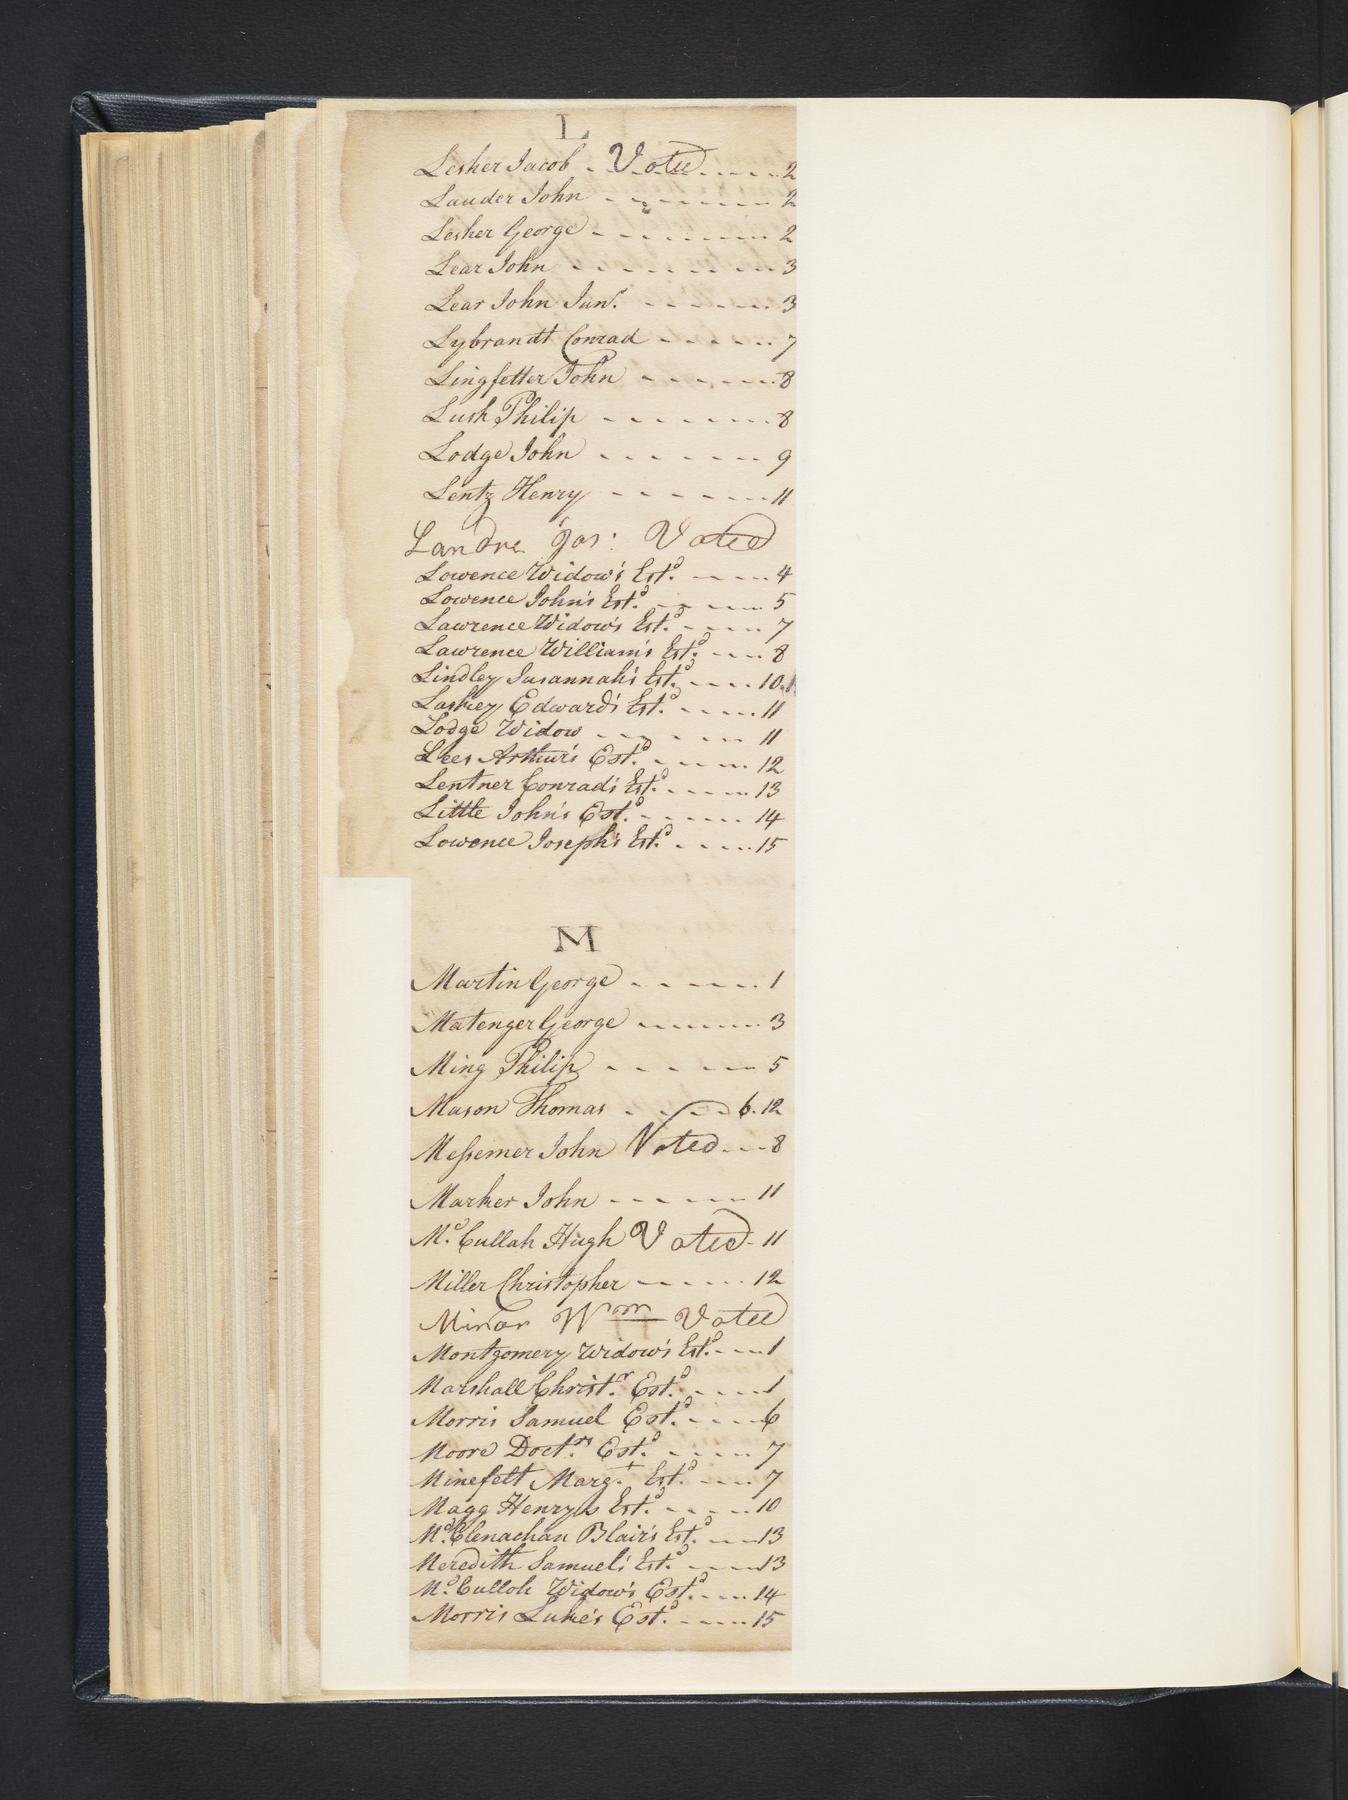 L
Lesher Jacob - Voted - - - - 2
Lauder John - - - - - - - 2
Lesher George - - - - - - - 2
Lear John - - - - - - - 3
Lear John Junr. - - - - - - 3
Lybrandt Conrad - - - - - 7
Lingfetter John - - - - - - 8
Lush Philip - - - - - - - 8
Lodge John - - - - - - 9
Lentz Henry - - - - - - 11
Landre Jas: Voted
Lowence Widow's Estd. - - - - 4
Lowence John's Estd. - - - - 5
Lawrence Widow's Estd. - - - - 7
Lawrence William's Estd. - - - 8
Lindley Susannah's Estd. - - - - 10.1
Laskey Edward's Estd. - - - - - 11
Lodge Widow - - - - - - 11
Lees Arthur's Estd. - - - - - 12
Lentner Conrad's Estd. - - - - - 13
Little John's Estd. - - - - - - 14
Lowence Joseph's Estd. - - - - 15
M
Martin George - - - - - 1
Matenger George - - - - - - 3
Ming Philip - - - - - - 5
Mason Thomas - - - - 6.12
Messemer John Voted - - - 8
Marker John - - - - - - 11
Mc. Cullah Hugh Voted - 11
Miller Christopher - - - - - 12
Minor Wm Voted
Montgomery Widow's Estd. - - - 1
Marshall Christr. Estd. - - - - 1
Morris Samuel Estd. - - - - 6
Moore Doctrs. Estd. - - - - 7
Minefelt Margt. Estd. - - - - 7
Magg Henry's Estd. - - - - 10
Mc. Clenachan Blair's Estd. - - - 13
Meredith Samuel's Estd. - - - - 13
Mc. Culloh Widow's Estd. - - - - 14
Morris Luke's Estd. - - - - - 15